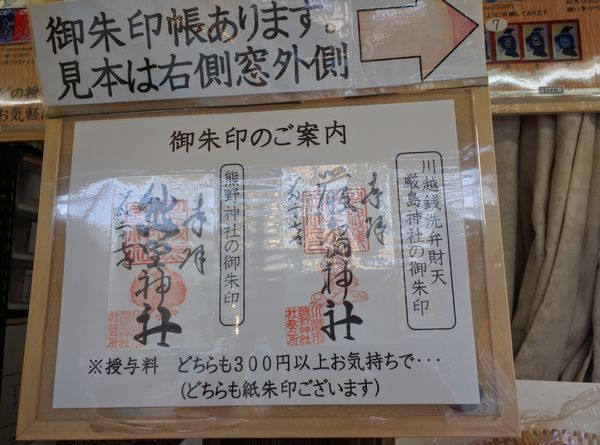 御朱印帳あります。
見本は右側窓外側
御朱印のご案内
川越銭洗弁財天
厳島神社の御朱印
奉拝
厳島神社
熊野神社の御朱印
奉拝
熊野神社
川越市
熊野神社
社務所
※授与料 どちらも300円以上お気持ちで・・・
(どちらも紙朱印ございます)
お気軽
7